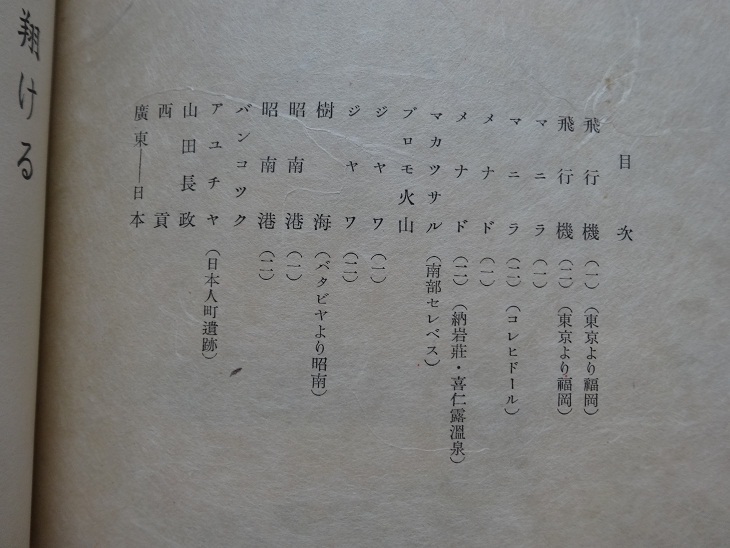 目次
飛行機(一)(東京より福岡)
飛行機(二)(東京より福岡)
マニラ(一)
マニラ(二)(コレヒドール)
メナド(一)
メナド(二)(納岩莊・喜仁露溫泉)
マカツサル(南部セレベス)
ブロモ火山
ジヤワ(一)
ジヤワ(二)
樹海(バタビヤより昭南)
昭南港(一)
昭南港(二)
バンコツク
アユチヤ(日本人町遺跡)
山田長政
西貢
廣東――日本
翔ける